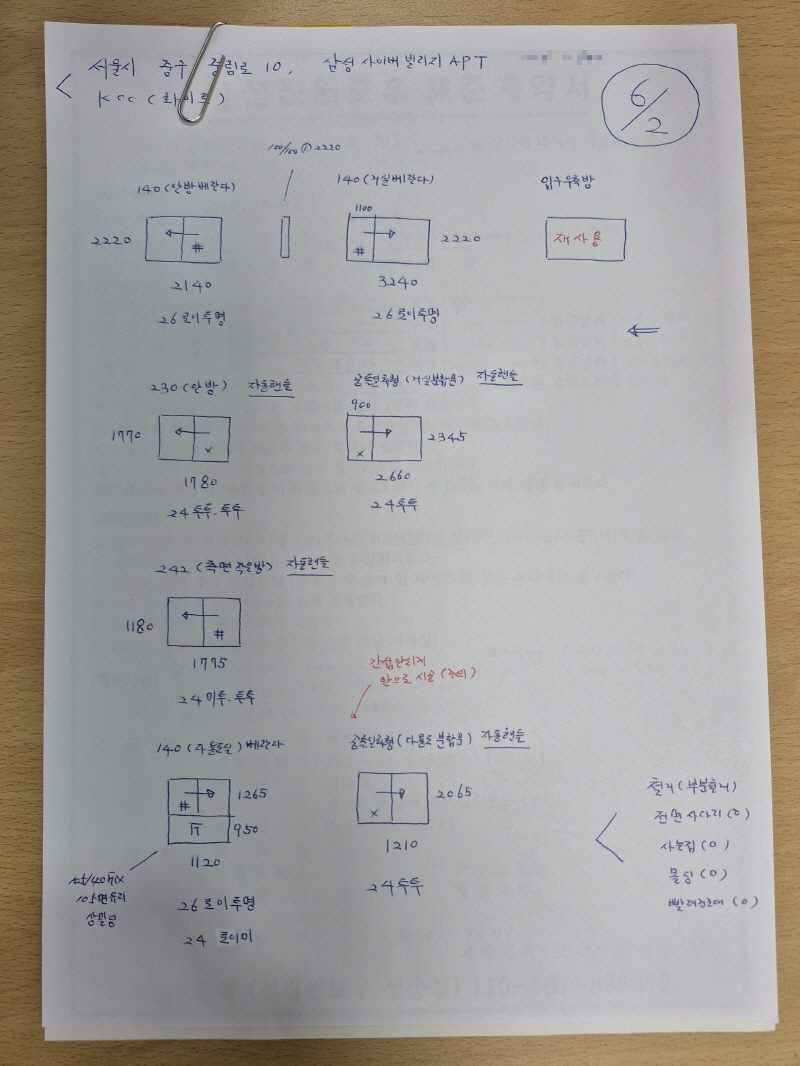 서울시 중구 중림로 10, 삼성 사이버 빌리지 APT
KCC (화이트)
6/2
100/100 ① 2220
140 (안방베란다)
2220
#
2140
26 로이투명
140 (거실베란다)
1100
#
2220
3240
26 로이투명
입구우측방
재사용
230 (안방) 자동핸들
1770
x
1780
24 투투. 투투
(거실분합문) 자동핸들
900
x
2345
2660
24 투투
242 (측면작은방) 자동핸들
1180
#
1775
24 미투. 투투
140 (다용도실) 베란다
#
1265
950
1120
26 로이투명
24 로이미
간섭안되게
안으로 시공 (주의)
(다용도 분합문) 자동핸들
x
2065
1210
24 투투
철거 (부분철거)
전면 사다리 (O)
사춤 (O)
몰딩 (O)
빨래건조대 (O)